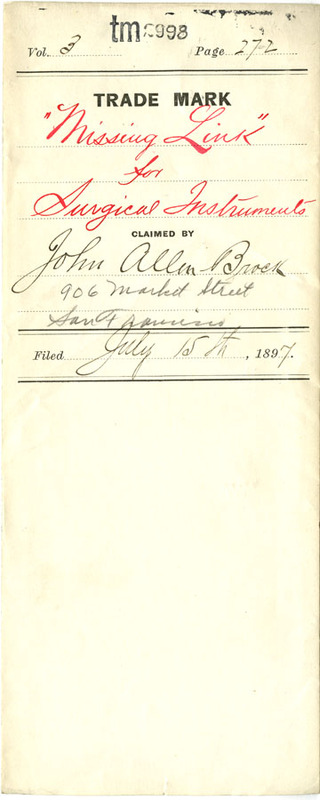 tm 2998
Vol. 3 Page 272
TRADE MARK
"Missing Link"
for
Surgical Instruments
CLAIMED BY
John Allen Brock
906 Market Street
San Francisco
Filed July 15th, 1897.